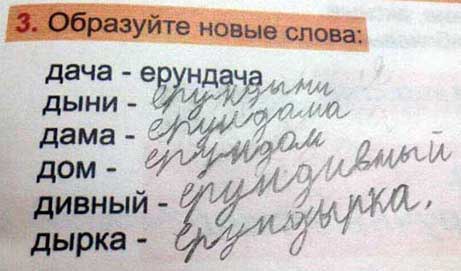 3. Образуйте новые слова:
дача - ерундача
дыни - ерундыни
дама - ерундама
дом - ерундом
дивный - ерундивный
дырка - ерундырка.